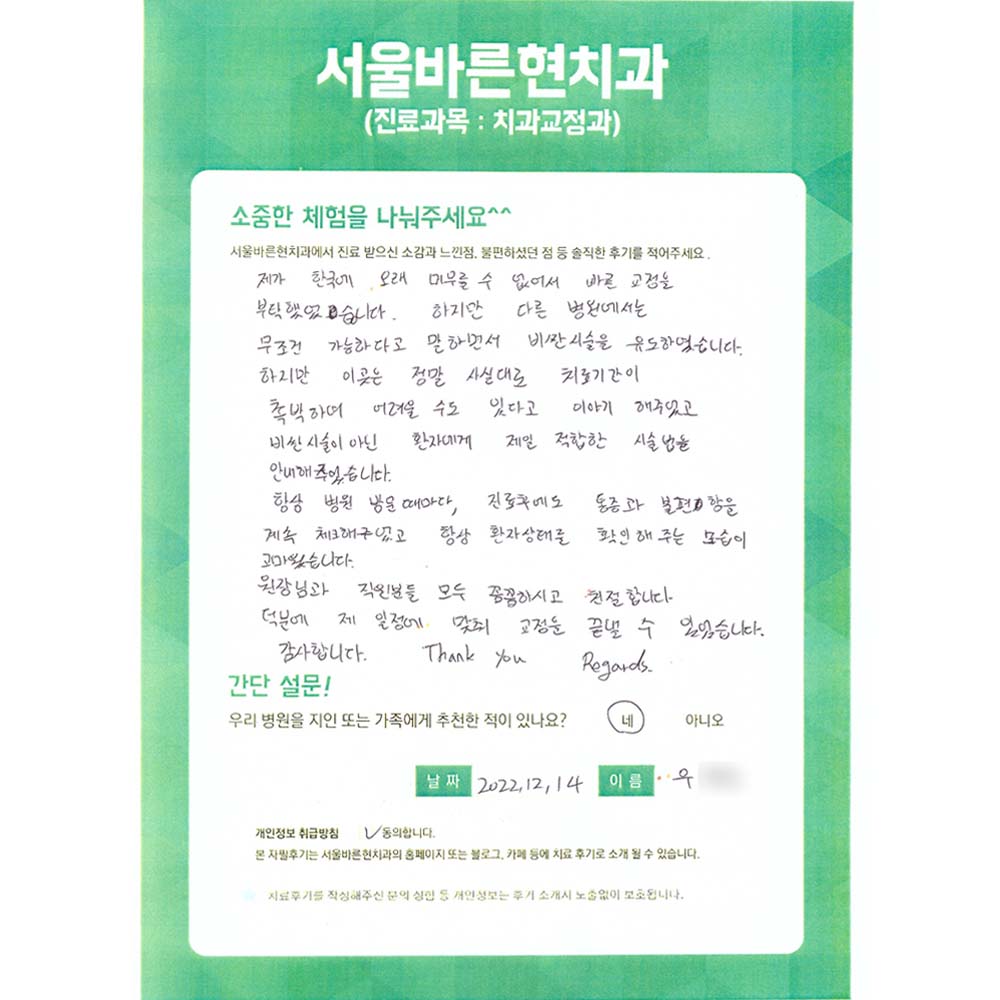 서울바른현치과
(진료과목 : 치과교정과)
소중한 체험을 나눠주세요^^
서울바른현치과에서 진료 받으신 소감과 느낀점, 불편하셨던 점 등 솔직한 후기를 적어주세요.
제가 한국에 오래 머무를 수 없어서 빠른 교정을
부탁했었습니다. 하지만 다른 병원에서는
무조건 가능하다고 말하면서 비싼시술을 유도하였습니다.
하지만 이곳은 정말 사실대로 치료기간이
촉박하여 어려울 수도 있다고 이야기 해주었고
비싼시술이 아닌 환자에게 제일 적합한 시술법을
안내해주었습니다.
항상 병원 방문때마다, 진료후에도 통증과 불편함을
계속 체크해주었고 항상 환자상태를 확인해 주는 모습이
고마웠습니다.
원장님과 직원분들 모두 꼼꼼하시고 친절합니다
덕분에 제 일정에 맞춰 교정을 끝낼 수 있었습니다.
감사합니다. Thank You Regards.
간단 설문!
우리 병원을 지인 또는 가족에게 추천한 적이 있나요? 네 아니오
날짜 2022.12.14 이름 우
개인정보 취급방침 ✓동의합니다.
본 자필후기는 서울바른현치과의 홈페이지 또는 블로그, 카페 등에 치료 후기로 소개 될 수 있습니다.
치료후기를 작성해주신 분의 성함 등 개인정보는 후기 소개시 노출없이 보호됩니다.